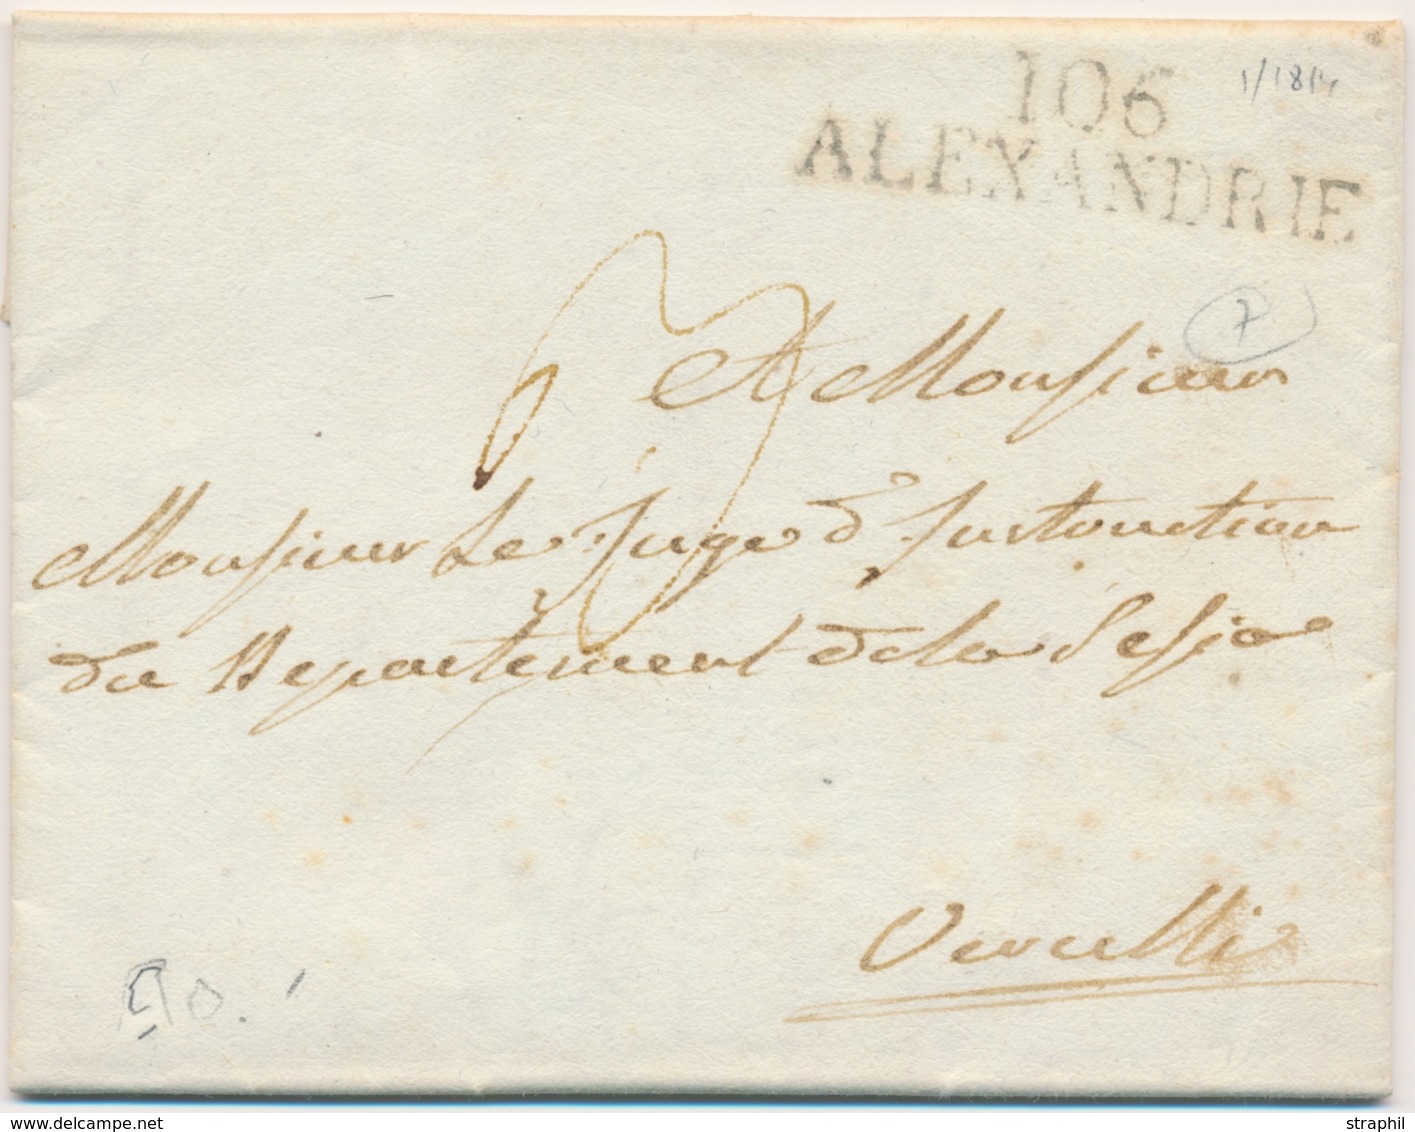 106
ALEXANDRIE
1/1814
7
3
A Monsieur
Monsieur Le Juge d'Instruction
du Département de la Sesia
Vercelli
www.delcampe.net
straphil